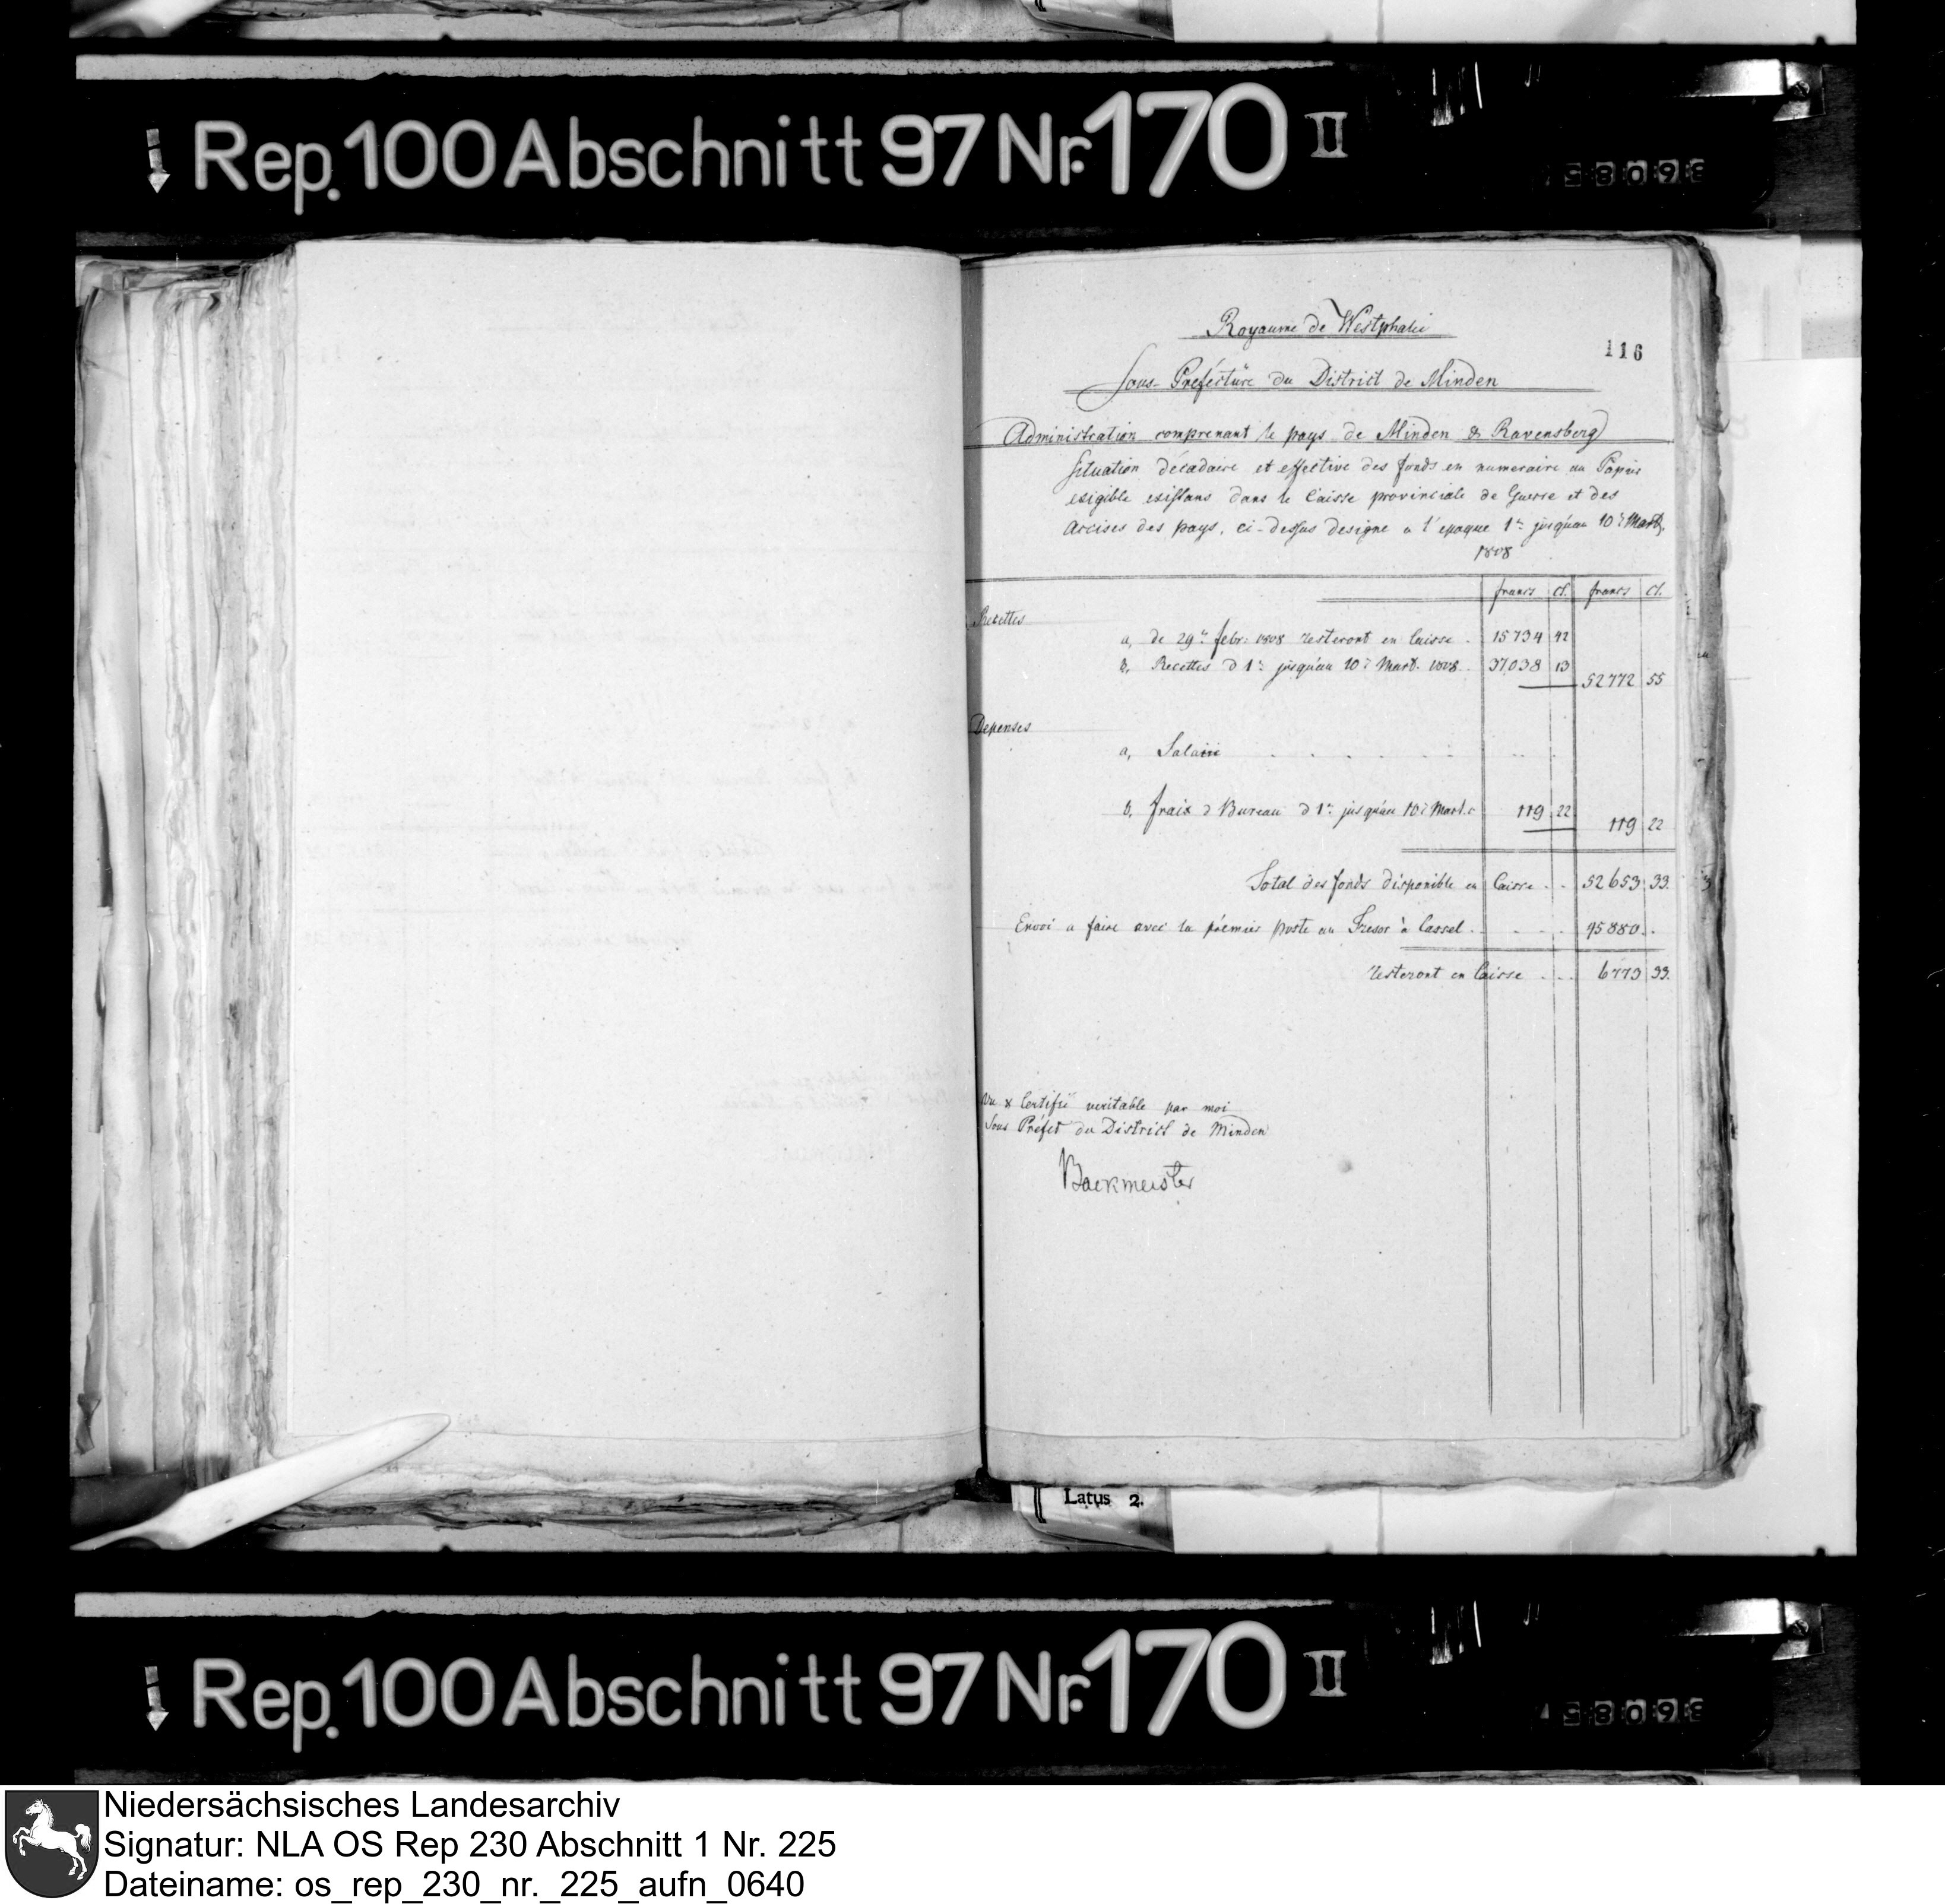 Rep. 100 Abschnitt 97 Nr. 170 II
Royaume de Westphalie
116
Sous-Préfécture du District de Minden
Administration comprenant le pays de Minden & Ravensberg
Situation décadaire et effective des fonds en numeraire ou Papier
exigible existans dans le Caisse provinciale de Guerre et des
Accises des pays, ci-dessus designe a l'epoque 1r jusqu'au 10 Mart.
1808
francs ct. francs ct.
Recettes
a, de 29 febr. 1808 resteront en Caisse . 15734 42
b, Recettes d 1r jusqu'au 10 Mart. 1808. 37038 13
52772 55
Depenses
a, Salaire
b, fraix d Bureau d 1r jusqu'au 10 Mart. 119 22
119 22
Total des fonds disponible en Caisse . . 52653 33.
Envoi a faire avec la prémier poste au Tresor à Cassel . 45880 .
resteront en Caisse . . . 6773 33.
Vu & Certifié veritable par moi
Sous Préfet du District de Minden
Backmeister
Latus 2.
Rep. 100 Abschnitt 97 Nr. 170 II
Niedersächsisches Landesarchiv
Signatur: NLA OS Rep 230 Abschnitt 1 Nr. 225
Dateiname: os_rep_230_nr._225_aufn_0640